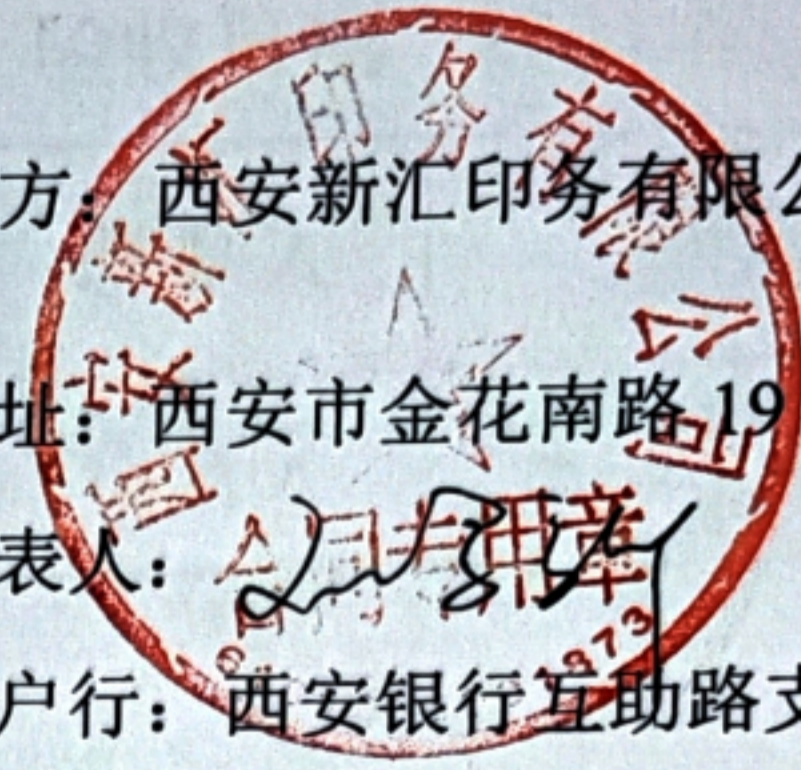 方：西安新汇印务有限公
址：西安市金花南路 19
表人：
户行：西安银行互助路支
西安新汇印务有限公司
合同专用章